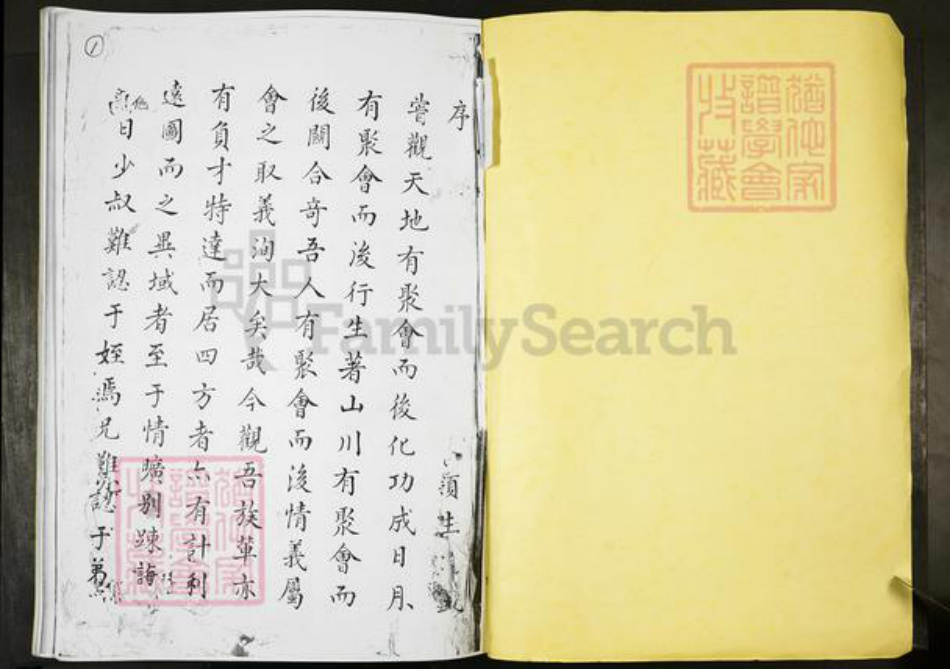 序
嘗觀天地有聚會而後化功成日月
有聚會而後行生著山川有聚會而
後關合奇吾人有聚會而後情義屬
會之取義洵大矣哉今觀吾族輩亦
有負才特達而居四方者亦有計利
遠圖而之異域者至于情曠別踈誨
日少叔難認于姪馮兄難認于弟
1
FamilySearch
譜學會
收藏